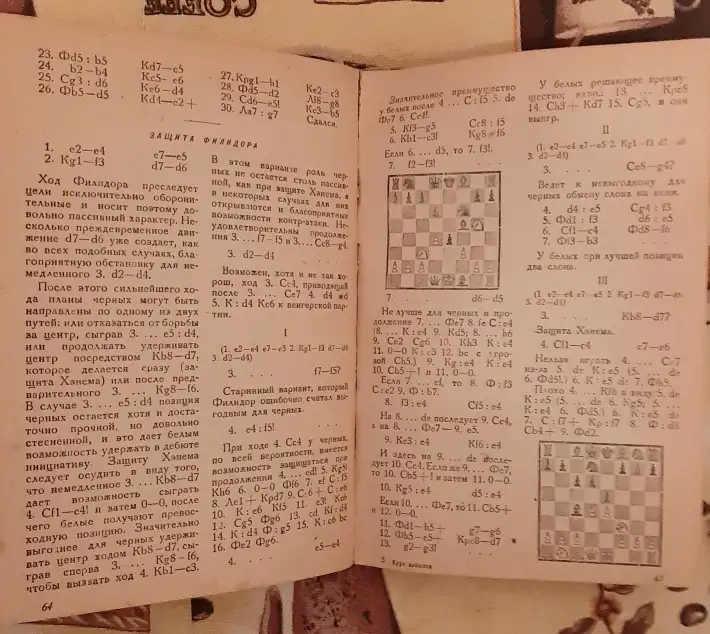 23. Фd5 : b5 Kd7—e5
24. b2—b4 Ke5—c6
25. Cg3 : d6 Ke6—d4
26. Фb5—d5 Kd4—e2+
27. Kpg1—h1 Ke2—c3
28. Фd5—d2 Лf8—g8
29. Cd6—e5! Kc3—b5
30. Лa7 : g7 Сдался.
ЗАЩИТА ФИЛИДОРА
1. e2—e4 e7—e5
2. Kg1—f3 d7—d6
Ход Филидора преследует
цели исключительно оборони-
тельные и носит поэтому до-
вольно пассивный характер. Не-
сколько преждевременное дви-
жение d7—d6 уже создает, как
во всех подобных случаях, бла-
гоприятную обстановку для не-
медленного 3. d2—d4.
После этого сильнейшего хо-
да планы черных могут быть
направлены по одному из двух
путей: или отказаться от борьбы
за центр, сыграв 3. ... e5 : d4,
или продолжать удерживать
центр посредством Kb8—d7,
которое делается сразу (за-
щита Ханема) или после пред-
варительного 3. ... Kg8—f6.
В случае 3. ... e5 : d4 позиция
черных остается хотя и доста-
точно прочной, но довольно
стесненной, и это дает белым
возможность удержать в дебюте
инициативу. Защиту Ханема
следует осудить в виду того,
что немедленное 3. ... Kb8—d7
дает возможность сыграть
4. Cf1—c4! и затем 0—0, после
чего белые получают превос-
ходную позицию. Значительно
выгоднее для черных удержи-
вать центр ходом Kb8—d7, сы-
грав сперва 3. ... Kg8—f6,
чтобы вызвать ход 4. Kb1—c3.
64
В этом варианте роль чер-
ных не остается столь пассив-
ной, как при защите Ханема, и
в некоторых случаях для них
открываются и благоприятные
возможности контр-атаки. Не-
удовлетворительны продолже-
ния 3. ... f7—f5 и 3. ... Cc8—g4.
3. d2—d4
Возможен, хотя и не так хо-
рош, ход 3. Cc4, приводящий
после 3. ... Ce7 4. d4 ed
5. K : d4 Kc6 к венгерской пар-
тии.
I
(1. e2—e4 e7—e5 2. Kg1—f3 d7—d6
3. d2—d4)
3. ... f7—f5?
Старинный вариант, который
Филидор ошибочно считал вы-
годным для черных.
4. e4 : f5!
При ходе 4. Cc4 у черных,
по всей вероятности, имеется
возможность защищаться при
продолжении 4. ... ed! 5. Kg5!
Kh6 6. 0—0 Фf6 7. ef C : f5
8. Лe1+ Kpd7 9. C:c6+ C : e6
10. K : e6 Kf5 11. c3! Kc6
12. Cg5 Фg6 13. cd Kf : d4
14. K : d4 Ф : g5 15. K : c6 bc
16. Фe2 Фg6.
4. ... e5—e4
Значительное преимущество
у белых после 4 ... C : f5 5. de
Фe7 6. Cc4!.
5. Kf3—g5 Cc8 : f5
6. Kb1—c3! Kg8—f6
Если 6. ... d5, то 7. f3!.
7. f2—f3!
7. ... d6—d5
Не лучше для черных и про-
должение 7. ... Фe7 8. fe C : e4
9. Ce2 Cg6 10. Kh3 K : e4
11. 0—0 K : c3 12. bc
10. Cb5+! и 11. 0—0.
Если 7. ... ef, то 8. Ф : f3
C : c2 9. Ф : b7.
8. f3 : e4 Cf5 : e4
На 8. ... de последует 9. Cc4,
а на 8. ... Фe7—9. e5.
9. Kc3 : e4 Kf6 : e4
И здесь на 9. ... de после-
дует 10. Cc4. Если же 9. ... Фe7,
то 10. Cb5+! и затем 11. 0—0.
10. Kg5 : e4 d5 : e4
Если 10. ... Фe7, то 11. Cb5+
и 12. 0—0.
11. Фd1—h5+ g7—g6
12. Фh5—e5+ Kpe8—d7
13. g2—g3!
5 Курс дебютов
У белых решающее преиму-
щество; напр.: 13. ... Kpc8
14. Ch3+ Kd7 15. Cg5, и они
выигр.
II
(1. e2—e4 e7—e5 2. Kg1—f3 d7—d6
3. d2—d4)
3. ... Cc8—g4?
Ведет к невыгодному для
черных обмену слона на коня.
4. d4 : e5 Cg4 : f3
5. Фd1 : f3 d6 : e5
6. Cf1—c4 Фd8—f6
7. Фf3—b3
У белых при лучшей позиции
два слона.
III
(1. e2—e4 e7—e5 2. Kg1—f3 d7—d6
3. d2—d4)
3. ... Kb8—d7?
Защита Ханема.
4. Cf1—c4 c7—c6
Нельзя играть 4. ... Ce7
из-за 5. de K : e5 (5. ... de
6. Фd5!) 6. K : e5 de 7. Фh5.
Плохо 4. ... Kf6 в виду 5. de
K : e5 (5. ... de 6. Kg5; 5. ...
K : e4 6. Фd5!) 6. K : e5 de
7. C : f7+ Kp : f7 8. Ф : d8
Cb4+ 9. Фd2.